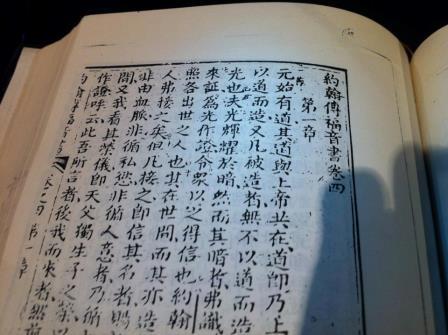 約翰傳福音書卷四
第一章
元始有道其道與上帝共在道即乃上
以道而造又凡被造者無不以道而造
光也夫光輝耀於暗然而其暗者弗識
來証爲光作證令眾以之得信也約翰
照各出世之人也其在世間而其亦造
人弗接之矣但凡接之即信其名者賜
非由血脈非循私慾非循人意者乃
間又我看其榮儀即天父獨生子之榮
作證呼云此吾所言者後我而來者
卷之四 第一章